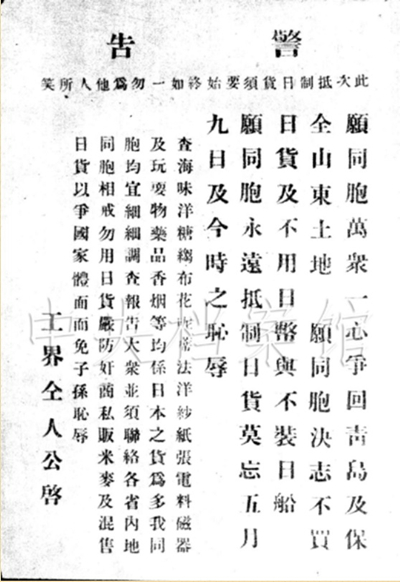 警告
此次抵制日貨須要始終如一勿爲他人所笑
願同胞萬衆一心爭回靑島及保
全山東土地　願同胞決志不買
日貨及不用日幣與不裝日船
願同胞永遠抵制日貨莫忘五月
九日及今時之恥辱
查海味洋糖縐布花法洋紗紙張電料磁器
及玩耍物藥品香烟等均係日本之貨爲多我同
胞均宜細細調查報告大衆並須聯絡各省內地
同胞相戒勿用日貨嚴防奸商私販米麥及混售
日貨以爭國家體面而免子孫恥辱
工界仝人公啓
中央档案馆